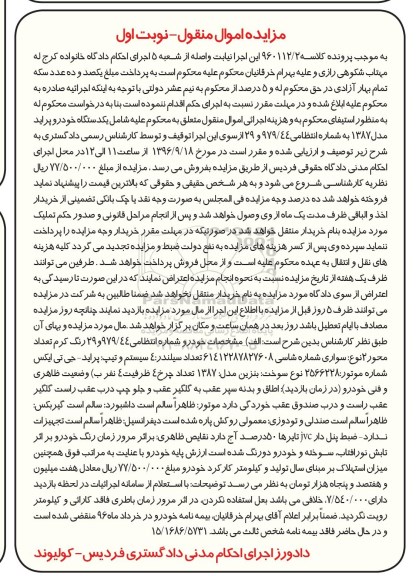 مزایده اموال منقول-نوبت اول
به موجب پرونده کلاسه ۹۶۰۱۱۲/۲ این اجرا نیابت واصله از شعبه ۵ اجرای احکام دادگاه خانواده کرج له
مهناب شکوهی رازی و علیه بهرام خرقانیان محکوم علیه محکوم است به پرداخت مبلغ یکصد و ده عدد سکه
تمام بهار آزادی در حق محکوم له و ۵ درصد از محکوم به نیم عشر دولتی با توجه به اینکه اجرائیه صادره به
محکوم علیه ابلاغ شده و در مهلت مقرر نسبت به اجرای حکم اقدام ننموده است بنا به درخواست محکوم له
به منظور استیفای محکوم به و هزینه اجرائی اموال منقول متعلق به محکوم علیه شامل یکدستگاه خودرو پراید
مدل ۱۳۸۷ به شماره انتظامی ۹۷۹/۴۴ و ۲۹ از سوی این اجرا توقیف و توسط کارشناس رسمی دادگستری به
شرح زیر توصیف و ارزیابی شده و مقرر است در مورخ ۱۳۹۶/۹/۱۸ از ساعت ۱۱ الی ۱۲ در محل اجرای
احکام مدنی دادگاه حقوقی فردیس از طریق مزایده بفروش می رسد. مزایده از مبلغ ۷۷/۵۰۰/۰۰۰ ریال
نظریه کارشناسی شروع می شود و به هر شخص حقیقی و حقوقی که بالاترین قیمت را پیشنهاد نماید
فروخته خواهد شد ده درصد وجه مزایده فی المجلس به صورت وجه نقد یا چک بانکی تضمینی از خریدار
اخذ و الباقی ظرف مدت یک ماه از وی وصول خواهد شد و پس از انجام مراحل قانونی و صدور حکم تملیک
مورد مزایده بنام خریدار منتقل خواهد شد در صورتیکه در مهلت مقرر خریدار وجه مزایده را پرداخت
ننماید سپرده وی پس از کسر هزینه های مزایده به نفع دولت ضبط و مزایده تجدید می گردد کلیه هزینه
های نقل و انتقال به عهده محکوم علیه است و از محل فروش پرداخت خواهد شد. طرفین می توانند
ظرف یک هفته از تاریخ مزایده نسبت به نحوه انجام مزایده اعتراض نمایند که در این صورت تا رسیدگی به
اعتراض از سوی دادگاه مورد مزایده به نام خریدار منتقل نخواهد شد ضمنا طالبین به شرکت در مزایده
می توانند ظرف ۵ روز قبل از مزایده با اطلاع این اجرا از مال مورد مزایده بازدید نمایند چنانچه روز مزایده
مصادف با ایام تعطیل باشد روز بعد در همان ساعت و مکان برگزار خواهد شد. مال مورد مزایده و بهای آن
طبق نظر کارشناس بدین شرح است: الف) مشخصات خودرو شماره انتظامی ۹۷۹/۴۴ و ۲۹ رنگ کرم تعداد
محور ۲ نوع: سواری شماره شاسی ۶۱۴۱۲۲۸۷۸۲۷۶۰۸ تعداد سیلندر: ۴ سیستم و تیپ: پراید- جی تی ایکس
شماره موتور: ۲۵۶۶۲۲۸ نوع سوخت: بنزین مدل ۱۳۸۷ تعداد چرخ ۴ ظرفیت ۴ نفر ب) وضعیت ظاهری
و فنی خودرو (در زمان بازدید): اطاق و بدنه سپر عقب به گلگیر عقب و جلو چپ درب عقب راست گلگیر
عقب راست و درب صندوق عقب خوردگی دارد موتور: ظاهراً سالم است داشبورد: سالم است گیربکس:
ظاهراً سالم است صندلی و تودوزی: معمولی روکش پاره شده است دیفرانسیل: ظاهراً سالم است تجهیزات
ندارد- ضبط پنل دار jvc تایرها ۵۰ درصد آج دارد نقایص ظاهری: براثر مرور زمان رنگ خودرو بر اثر
تابش نور آفتاب، سوخته و خودرو دورنگ شده است ارزش پایه خودرو با عنایت به مراتب فوق همچنین
میزان استهلاک بر مبنای سال تولید و کیلومتر کارکرد خودرو مبلغ ۷۷/۵۰۰/۰۰۰ ریال معادل هفت میلیون
و هفتصد و پنجاه هزار تومان به نظر می رسد توضیحات: با استعلام از سامانه اجرائیات در لحظه بازدید
دارای ۷/۵۴۰/۰۰۰ خلافی می باشد بعل استفاده نکردن، در اثر مرور زمان باطری فاقد کارائی و کیلومتر
رویت نگردید. ضمناً برابر اعلام آقای بهرام خرقانیان، بیمه نامه خودرو در خرداد ماه ۹۶ منقضی شده است
و در حال حاضر فاقد بیمه نامه شخص ثالث می باشد. ۱۵/۱۶۸۶/۵۷۳۱
دادورز اجرای احکام مدنی دادگستری فردیس- کولیوند